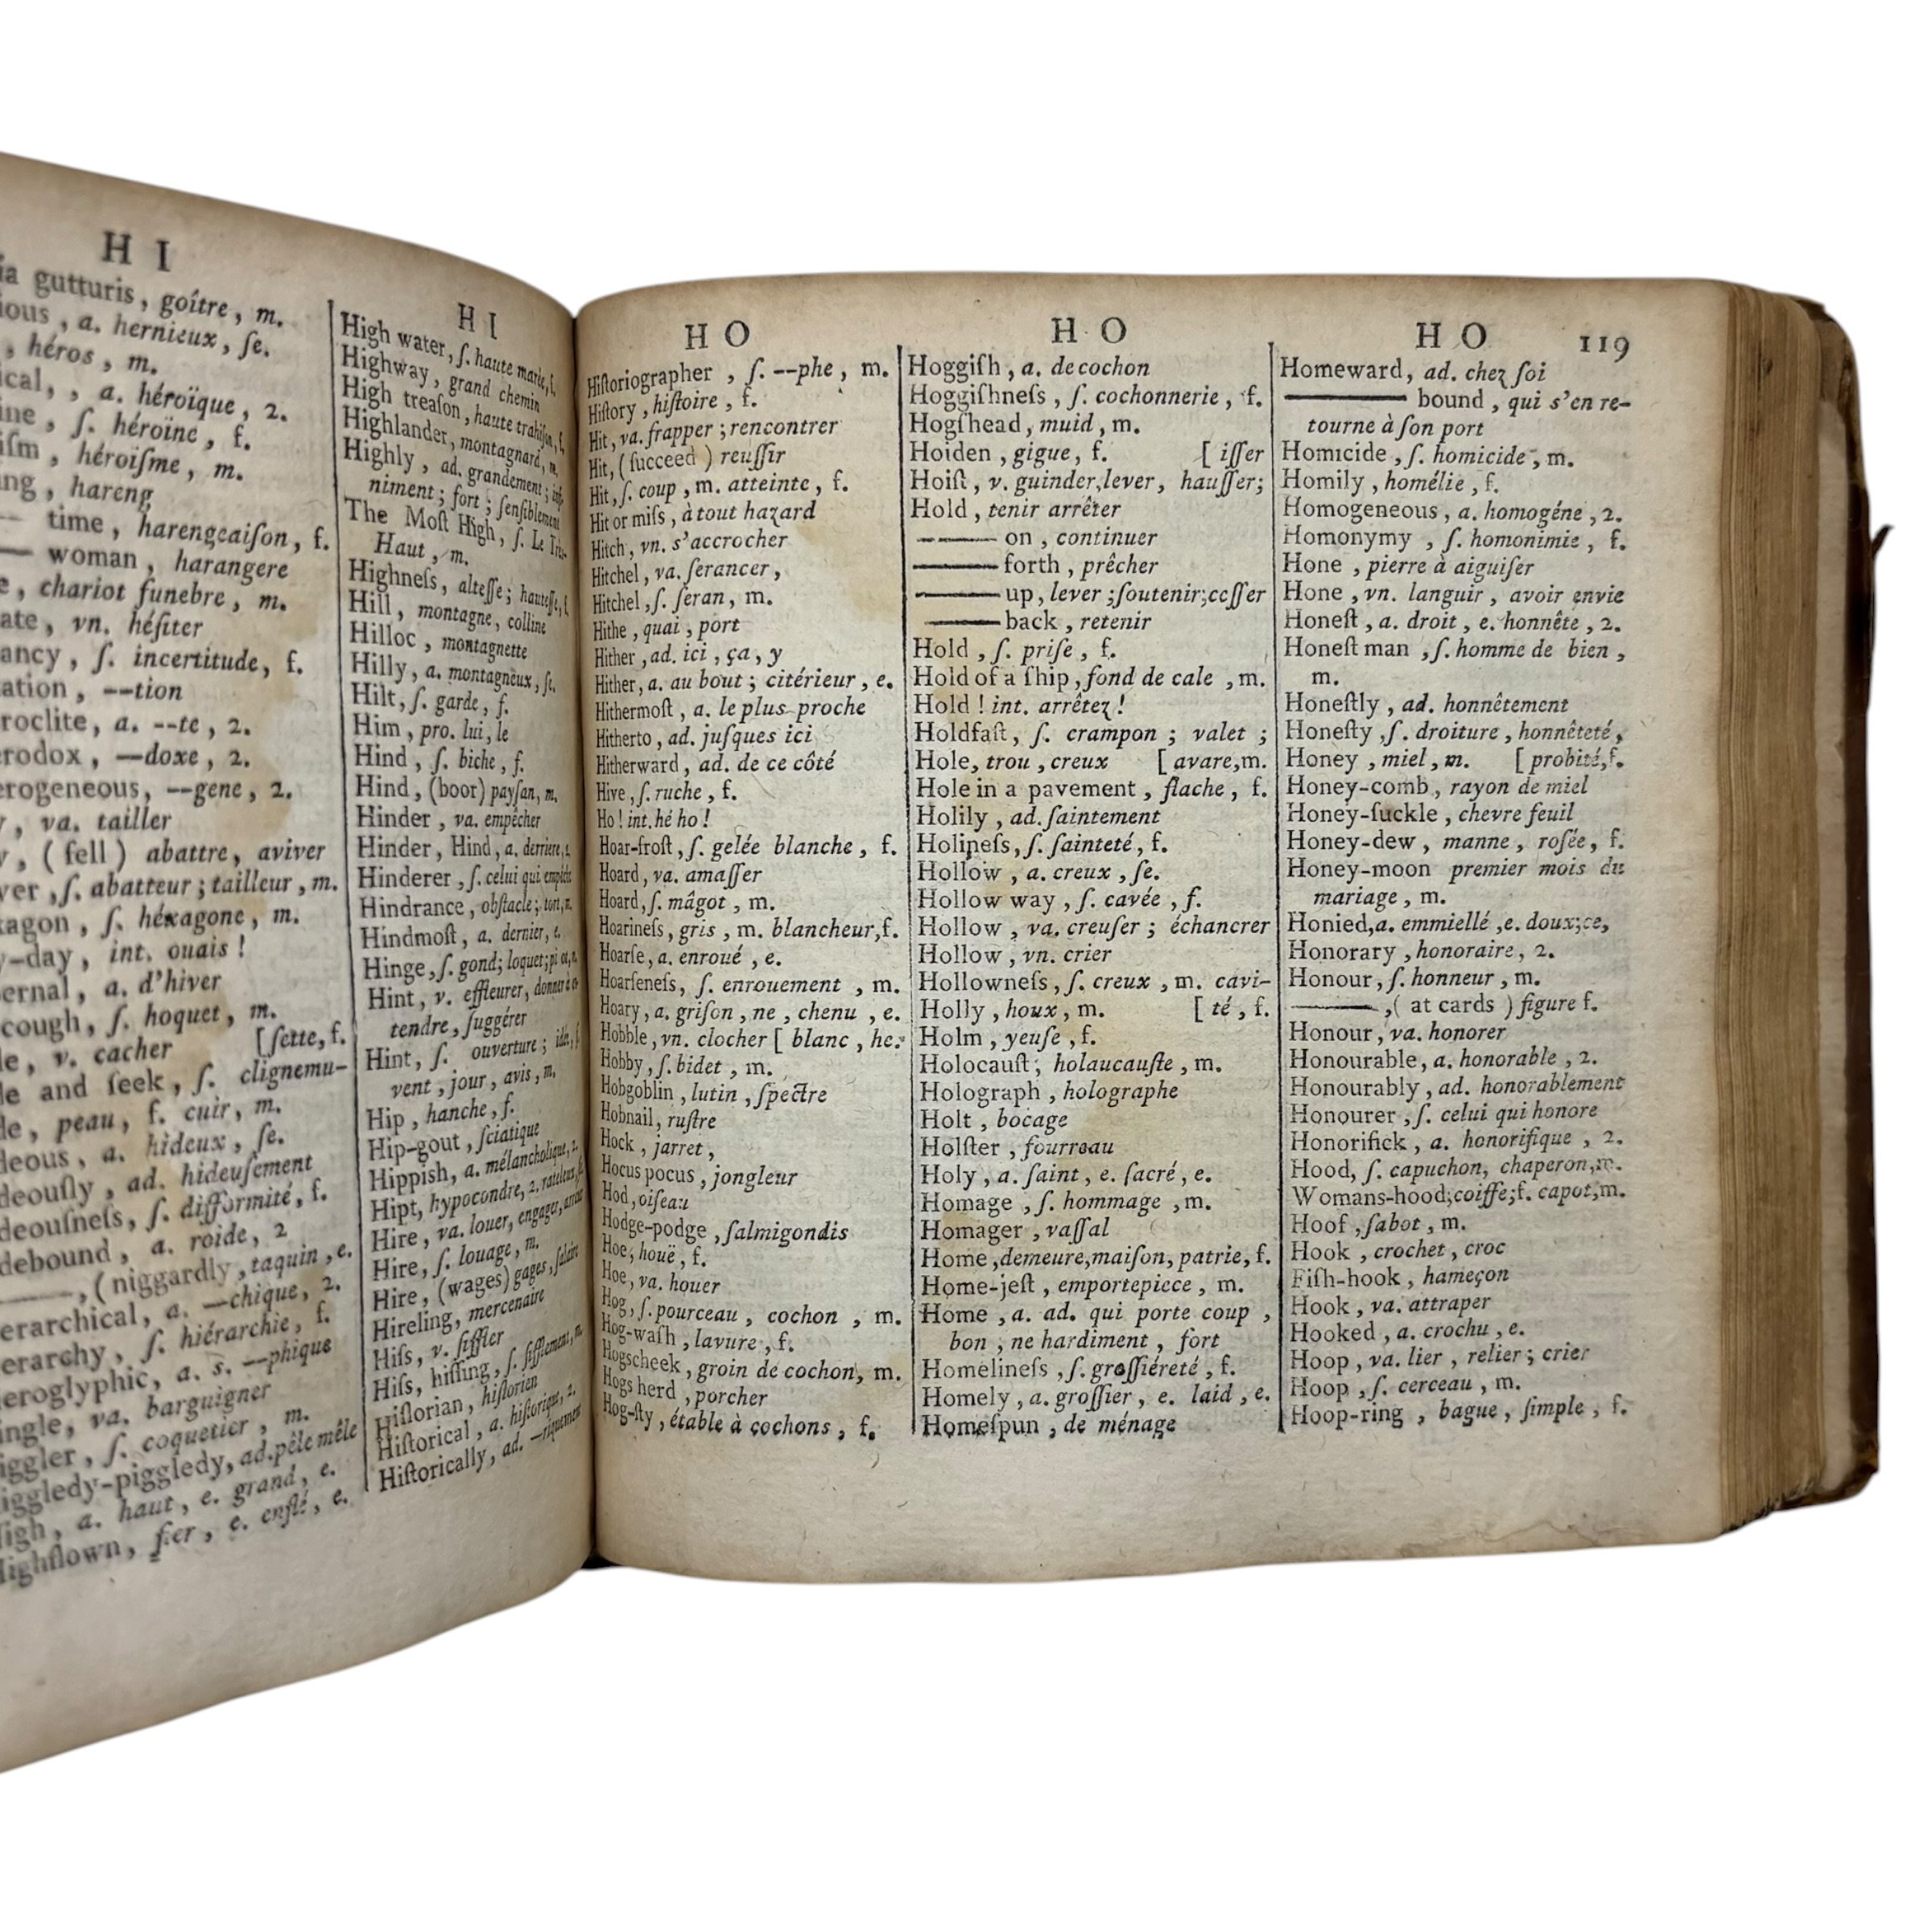 H I
gutturis, goître, m.
a. hernieux, ſe.
, héros, m.
, a. héroïque, 2.
ſ. héroïne, f.
, héroiſme, m.
, hareng
— time, harengcaiſon, f.
— woman, harangere
, chariot funebre, m.
vn. héſiter
ſ. incertitude, f.
--tion
a. --te, 2.
—doxe, 2.
--gene, 2.
, va. tailler
, (fell) abattre, aviver
, ſ. abatteur; tailleur, m.
ſ. héxagone, m.
-day, int. ouais!
a. d'hiver
ſ. hoquet, m.
v. cacher [ſette, f.
and ſeek, ſ. clignemu-
peau, f. cuir, m.
a. hideux, ſe.
ad. hideuſement
ſ. difformité, f.
a. roide, 2
——, (niggardly, taquin, e.
a. —chique, 2.
ſ. hiérarchie, f.
a. s. —phique
va. barguigner
ſ. coquetier, m.
ad. pêle mêle
a. haut, e. grand, e.
fier, e. enflé, e.
H I
High water, ſ. haute marée, f.
Highway, grand chemin
High treaſon, haute trahiſon, f.
Highlander, montagnard, m.
Highly, ad. grandement;
niment; fort; ſenſiblement
The Moſt High, ſ. Le Très-
Haut, m.
Highneſs, alteſſe; hauteſſe, f.
Hill, montagne, colline
Hilloc, montagnette
Hilly, a. montagneux, ſe.
Hilt, ſ. garde, f.
Him, pro. lui, le
Hind, ſ. biche, f.
Hind, (boor) payſan, m.
Hinder, va. empêcher
Hinder, Hind, a. derriere, 2.
Hinderer, ſ. celui qui empêche
Hindrance, obſtacle; tort, m.
Hindmoſt, a. dernier, e.
Hinge, ſ. gond; loquet;
Hint, v. effleurer, donner à en-
tendre, ſuggérer
Hint, ſ. ouverture; idée, f.
vent, jour, avis, m.
Hip, hanche, f.
Hip-gout, ſciatique
Hippish, a. mélancholique, 2.
Hipt, hypocondre, 2.
Hire, va. louer, engager,
Hire, ſ. louage, m.
Hire, (wages) gages, ſalaire
Hireling, mercenaire
Hiſs, v. ſiffler
Hiſs, hiſſing, ſ. ſifflement, m.
Hiſtorian, hiſtorien
Hiſtorical, a. hiſtorique, 2.
Hiſtorically, ad. —riquement
H O
Hiſtoriographer, ſ. --phe, m.
Hiſtory, hiſtoire, f.
Hit, va. frapper; rencontrer
Hit, (ſucceed) reuſſir
Hit, ſ. coup, m. atteinte, f.
Hit or miſs, à tout hazard
Hitch, vn. s'accrocher
Hitchel, va. ſerancer,
Hitchel, ſ. ſeran, m.
Hithe, quai, port
Hither, ad. ici, ça, y
Hither, a. au bout; citérieur, e.
Hithermoſt, a. le plus proche
Hitherto, ad. juſques ici
Hitherward, ad. de ce côté
Hive, ſ. ruche, f.
Ho! int. hé ho!
Hoar-froſt, ſ. gelée blanche, f.
Hoard, va. amaſſer
Hoard, ſ. mâgot, m.
Hoarineſs, gris, m. blancheur, f.
Hoarſe, a. enroué, e.
Hoarſeneſs, ſ. enrouement, m.
Hoary, a. griſon, ne, chenu, e.
Hobble, vn. clocher [blanc, he.
Hobby, ſ. bidet, m.
Hobgoblin, lutin, ſpectre
Hobnail, ruſtre
Hock, jarret,
Hocus pocus, jongleur
Hod, oiſeau
Hodge-podge, ſalmigondis
Hoe, houë, f.
Hoe, va. houer
Hog, ſ. pourceau, cochon, m.
Hog-waſh, lavure, f.
Hogscheek, groin de cochon, m.
Hogs herd, porcher
Hog-ſty, étable à cochons, f.
H O
Hoggiſh, a. de cochon
Hoggiſhneſs, ſ. cochonnerie, f.
Hogſhead, muid, m.
Hoiden, gigue, f. [iſſer
Hoiſt, v. guinder, lever, hauſſer;
Hold, tenir arrêter
—— on, continuer
—— forth, prêcher
—— up, lever; ſoutenir; ceſſer
—— back, retenir
Hold, ſ. priſe, f.
Hold of a ſhip, fond de cale, m.
Hold! int. arrêtez!
Holdfaſt, ſ. crampon; valet;
Hole, trou, creux [avare, m.
Hole in a pavement, flache, f.
Holily, ad. ſaintement
Holineſs, ſ. ſainteté, f.
Hollow, a. creux, ſe.
Hollow way, ſ. cavée, f.
Hollow, va. creuſer; échancrer
Hollow, vn. crier
Hollowneſs, ſ. creux, m. cavi-
Holly, houx, m. [té, f.
Holm, yeuſe, f.
Holocauſt; holaucauſte, m.
Holograph, holographe
Holt, bocage
Holſter, fourreau
Holy, a. ſaint, e. ſacré, e.
Homage, ſ. hommage, m.
Homager, vaſſal
Home, demeure, maiſon, patrie, f.
Home-jeſt, emportepiece, m.
Home, a. ad. qui porte coup,
bon; ne hardiment, fort
Homelineſs, ſ. groſſiéreté, f.
Homely, a. groſſier, e. laid, e.
Homeſpun, de ménage
H O 119
Homeward, ad. chez ſoi
—— bound, qui s'en re-
tourne à ſon port
Homicide, ſ. homicide, m.
Homily, homélie, f.
Homogeneous, a. homogéne, 2.
Homonymy, ſ. homonimie, f.
Hone, pierre à aiguiſer
Hone, vn. languir, avoir envie
Honeſt, a. droit, e. honnête, 2.
Honeſt man, ſ. homme de bien,
m.
Honeſtly, ad. honnêtement
Honeſty, ſ. droiture, honnêteté,
Honey, miel, m. [probité, f.
Honey-comb, rayon de miel
Honey-ſuckle, chevre feuil
Honey-dew, manne, roſée, f.
Honey-moon premier mois du
mariage, m.
Honied, a. emmiellé, e. doux; ce,
Honorary, honoraire, 2.
Honour, ſ. honneur, m.
——, (at cards) figure f.
Honour, va. honorer
Honourable, a. honorable, 2.
Honourably, ad. honorablement
Honourer, ſ. celui qui honore
Honorifick, a. honorifique, 2.
Hood, ſ. capuchon, chaperon, m.
Womans-hood; coiffe; f. capot, m.
Hoof, ſabot, m.
Hook, crochet, croc
Fiſh-hook, hameçon
Hook, va. attraper
Hooked, a. crochu, e.
Hoop, va. lier, relier; crier
Hoop, ſ. cerceau, m.
Hoop-ring, bague, ſimple, f.